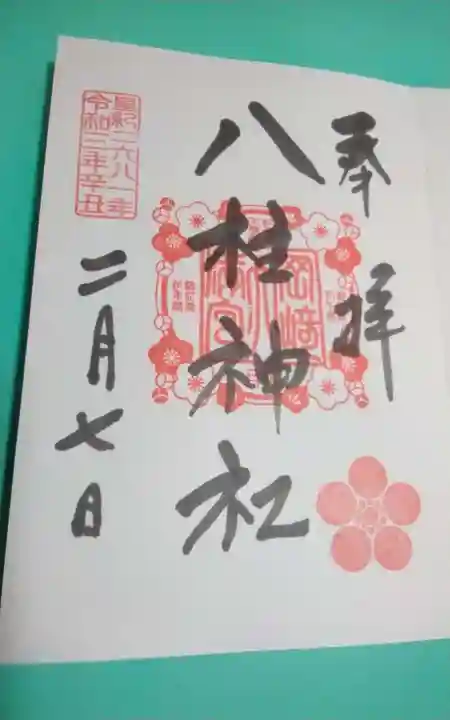 奉拝
八柱神社
岡﨑
皇紀二六八一年
令和三年辛丑
二月七日